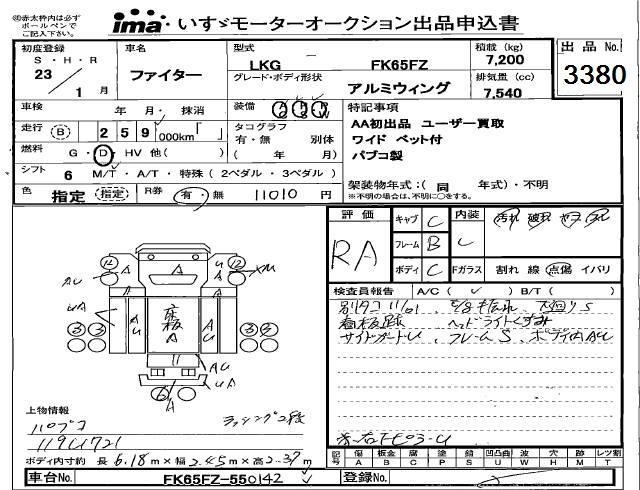 ⑩赤太枠内は必ずボールペンでご記入下さい。
ima いすゞモーターオークション出品申込書
初度登録 S・H・R 23 1 月
車名 ファイター
型式 LKG FK65FZ
積載 (kg) 7,200
出品No. 3380
グレード・ボディ形状 アルミウィング
排気量 (cc) 7,540
車検 年 月・抹消
装備
走行 (B) 2 5 9 000km「 」
タコグラフ 有・無 別体 ( 年 月)
燃料 G・D・HV 他( )
シフト 6 M/T・A/T・特殊 (2ペダル・3ペダル)
色 指定 (指定)
R券 有・無 11010 円
特記事項
AA初出品 ユーザー買取
ワイド ベット付
パブコ製
架装物年式:( 同 年式)・不明
※不明の場合は、不明に○をする。
評価 RA
キャブ C
フレーム B
ボディ C
内装 C
汚れ 破れ
Fガラス 割れ 線 点傷 イバリ
検査員報告 A/C( ✓ ) B/T( )
看板跡 ヘッドライトくすみ
サイドガードU フレームS ボディ内AU
上物情報
パブコ
ラッシング2段
ボディ内寸約 長 6.18 m×幅 2.45 m×高 2.37 m
記号 傷 A 板金 B 腐 C 塗 P 錆 S 凹凸曲 U 波 W 穴 H 跡 M レツ割 T
車台No. FK65FZ-550142
登録No.